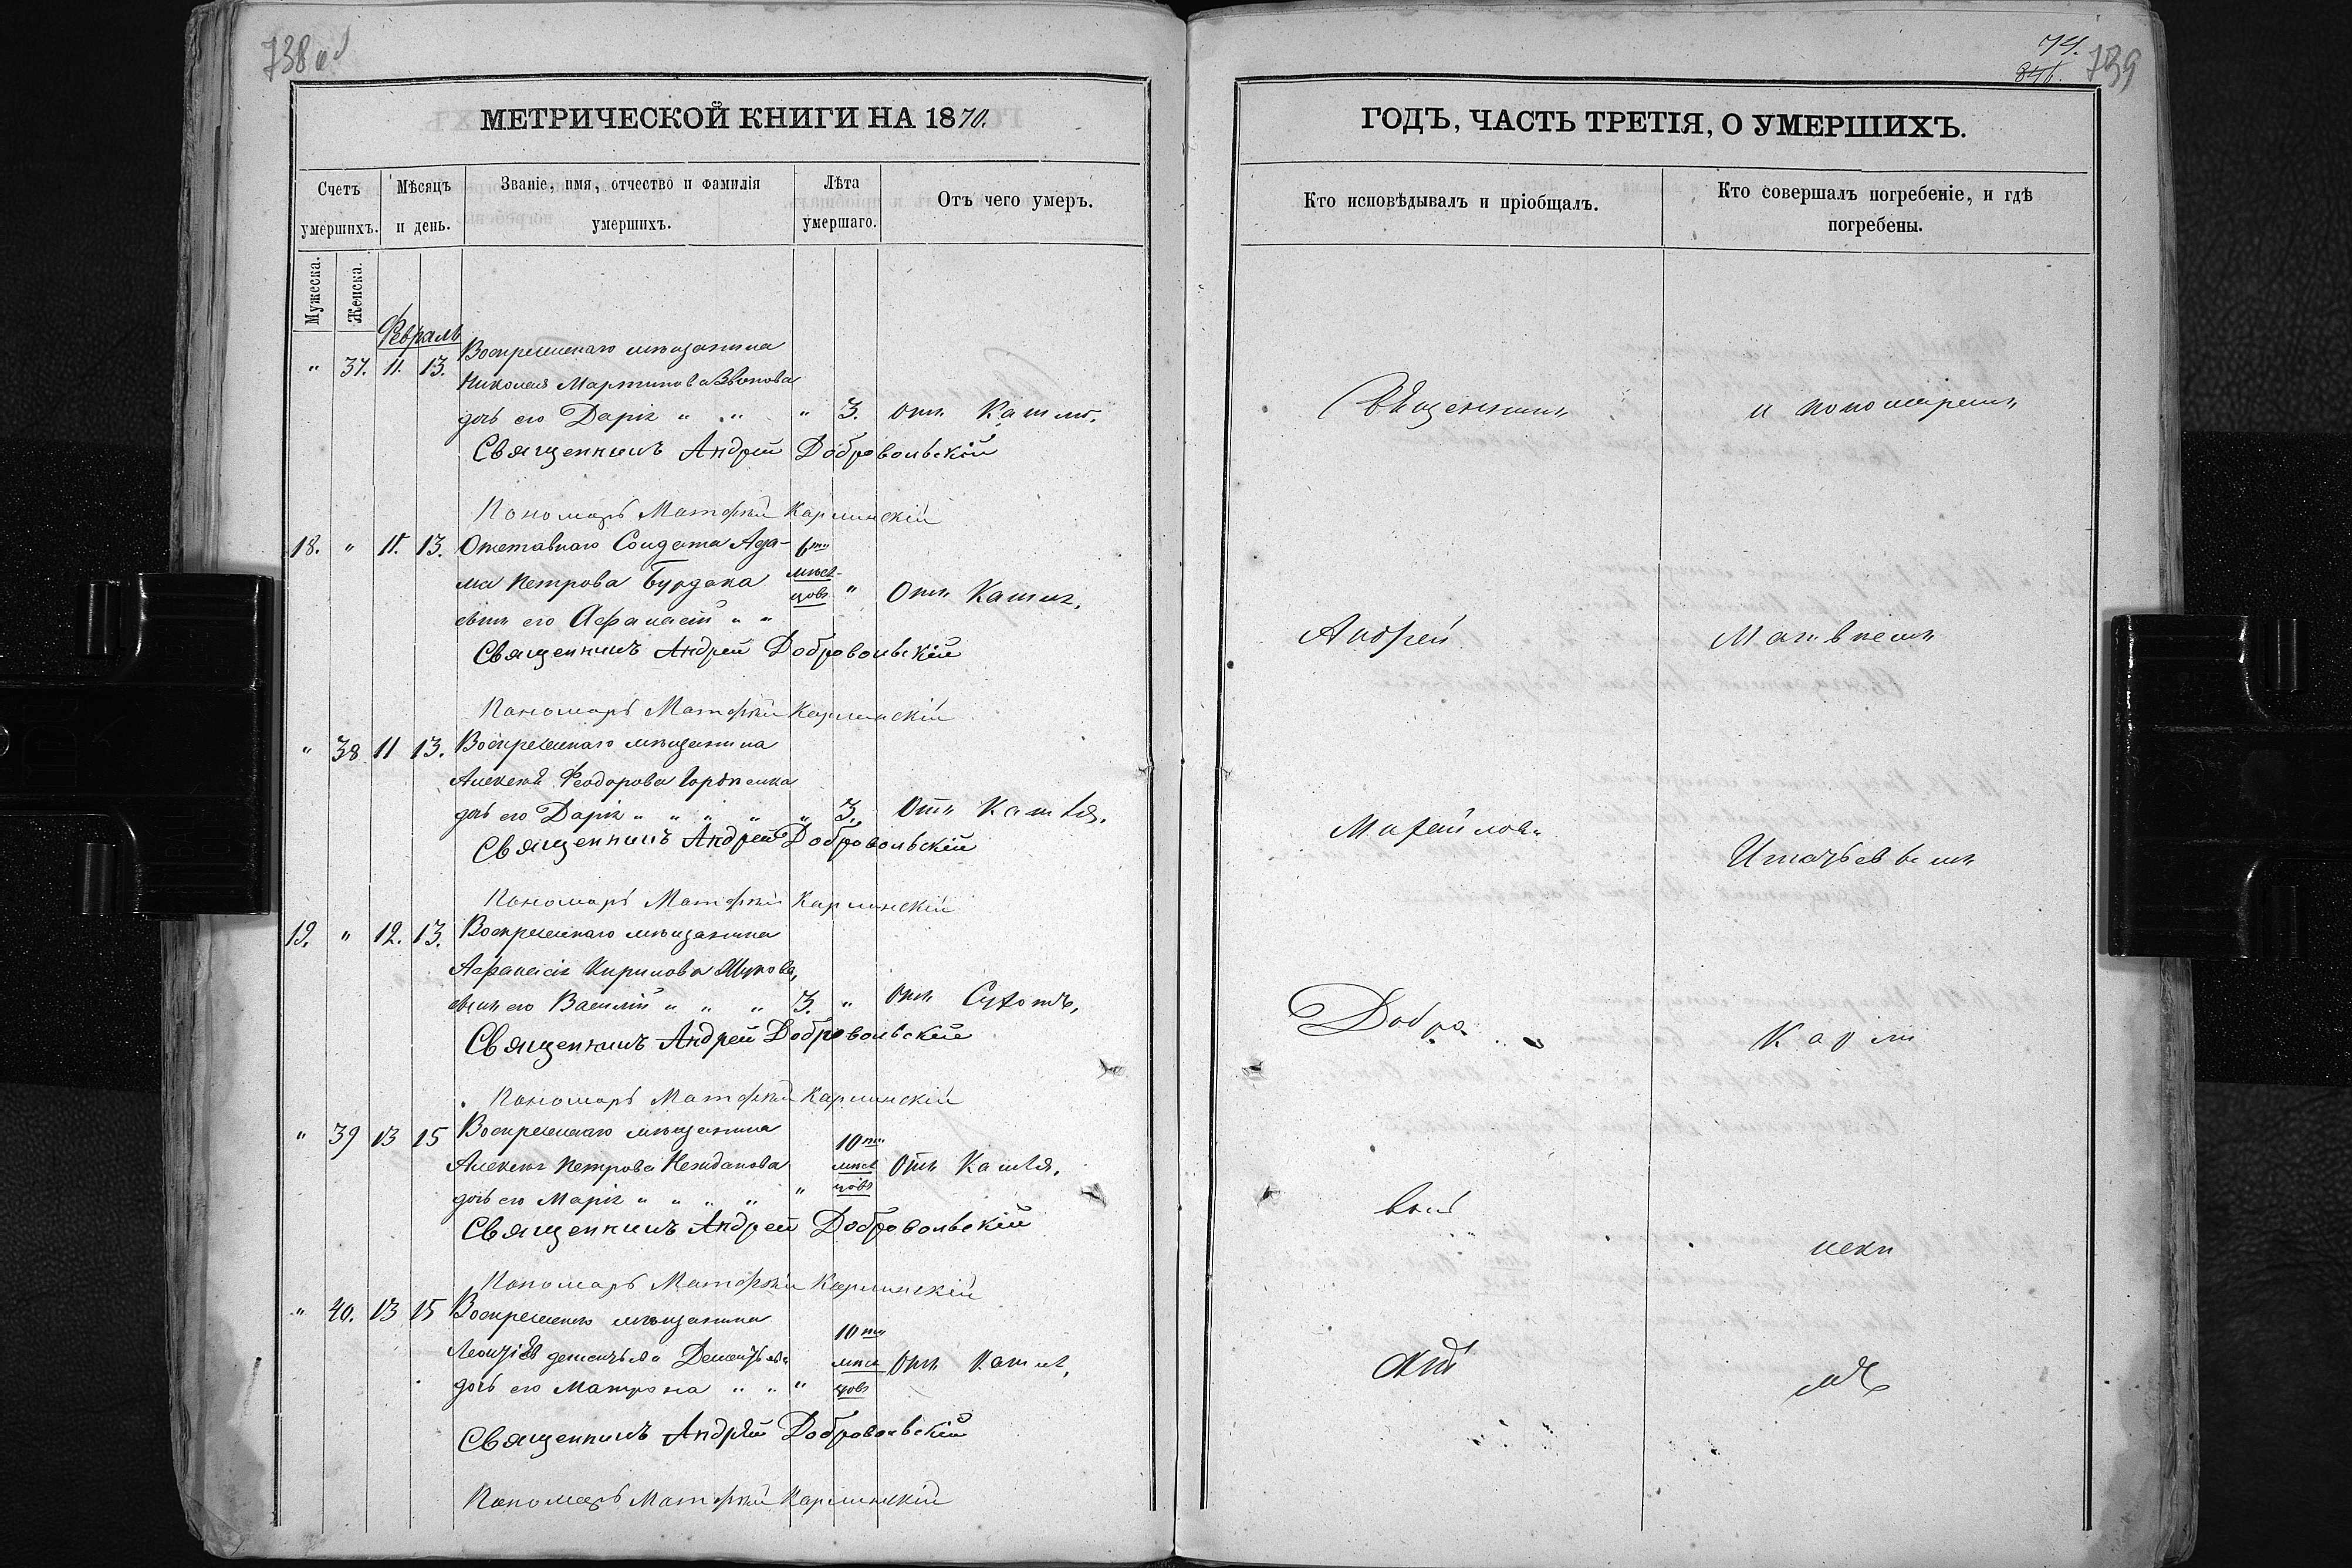 738 об
МЕТРИЧЕСКОЙ КНИГИ НА 1870.
Счетъ умершихъ.
Мѣсяцъ и день.
Званіе, имя, отчество и фамилія умершихъ.
Лѣта умершаго.
Отъ чего умеръ.
Мужеска.
Женска.
Февраль
" 37. 11. 13. Воскресенскаго мѣщанина
Николая Мартинова
дочь его Дарія " " " 3. отъ Кашлю.
Священникъ Андрей Добровольскій
Пономарь Матѳѣй Карминскій
18. " 11. 13. Отставнаго Солдата Ада-
ма Петрова Бурдака
сынъ его Афанасій " " 6ти мѣсяцовъ " Отъ Кашля.
Священникъ Андрей Добровольскій
Пономарь Матѳѣй Карминскій
" 38 11 13. Воскресенскаго мѣщанина
Алексѣя Феодорова
дочь его Дарія " " " " " 3. Отъ Кашля.
Священникъ Андрей Добровольскій
Пономарь Матѳѣй Карминскій
19. " 12. 13. Воскресенскаго мѣщанина
Афанасія Кирилова Жукова,
сынъ его Василій " " " 3. " отъ Сухотъ,
Священникъ Андрей Добровольскій
Пономарь Матѳѣй Карминскій
" 39 13 15 Воскресенскаго мѣщанина
Алексѣя Петрова Нежданова
дочь его Марія " " " " " 10ти мѣсяцовъ Отъ Кашля.
Священникъ Андрей Добровольскій
Пономарь Матѳѣй Карминскій
" 40. 13 15 Воскресенскаго мѣщанина
Леонтія Дементьева
дочь его Матрона " " " 10ти мѣсяцовъ Отъ Кашля,
Священникъ Андрей Добровольскій
Пономарь Матѳѣй Карминскій
74.
739
ГОДЪ, ЧАСТЬ ТРЕТІЯ, О УМЕРШИХЪ.
Кто исповѣдывалъ и пріобщалъ.
Кто совершалъ погребеніе, и гдѣ погребены.
Священникъ и пономаремъ
Андрей Матвѣемъ
Михайловъ
Игнатьевемъ
Добро Карми
воль
скій
мъ